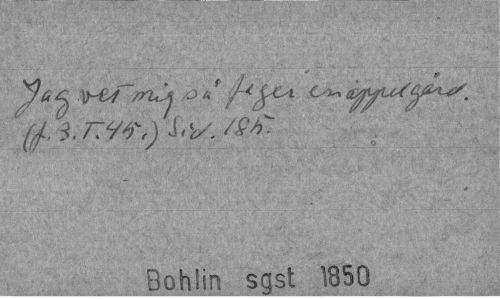 Jag vet mig så fager en äppelgård.
(J. 3. T. 45.) S. v. 185.
Bohlin sgst 1850